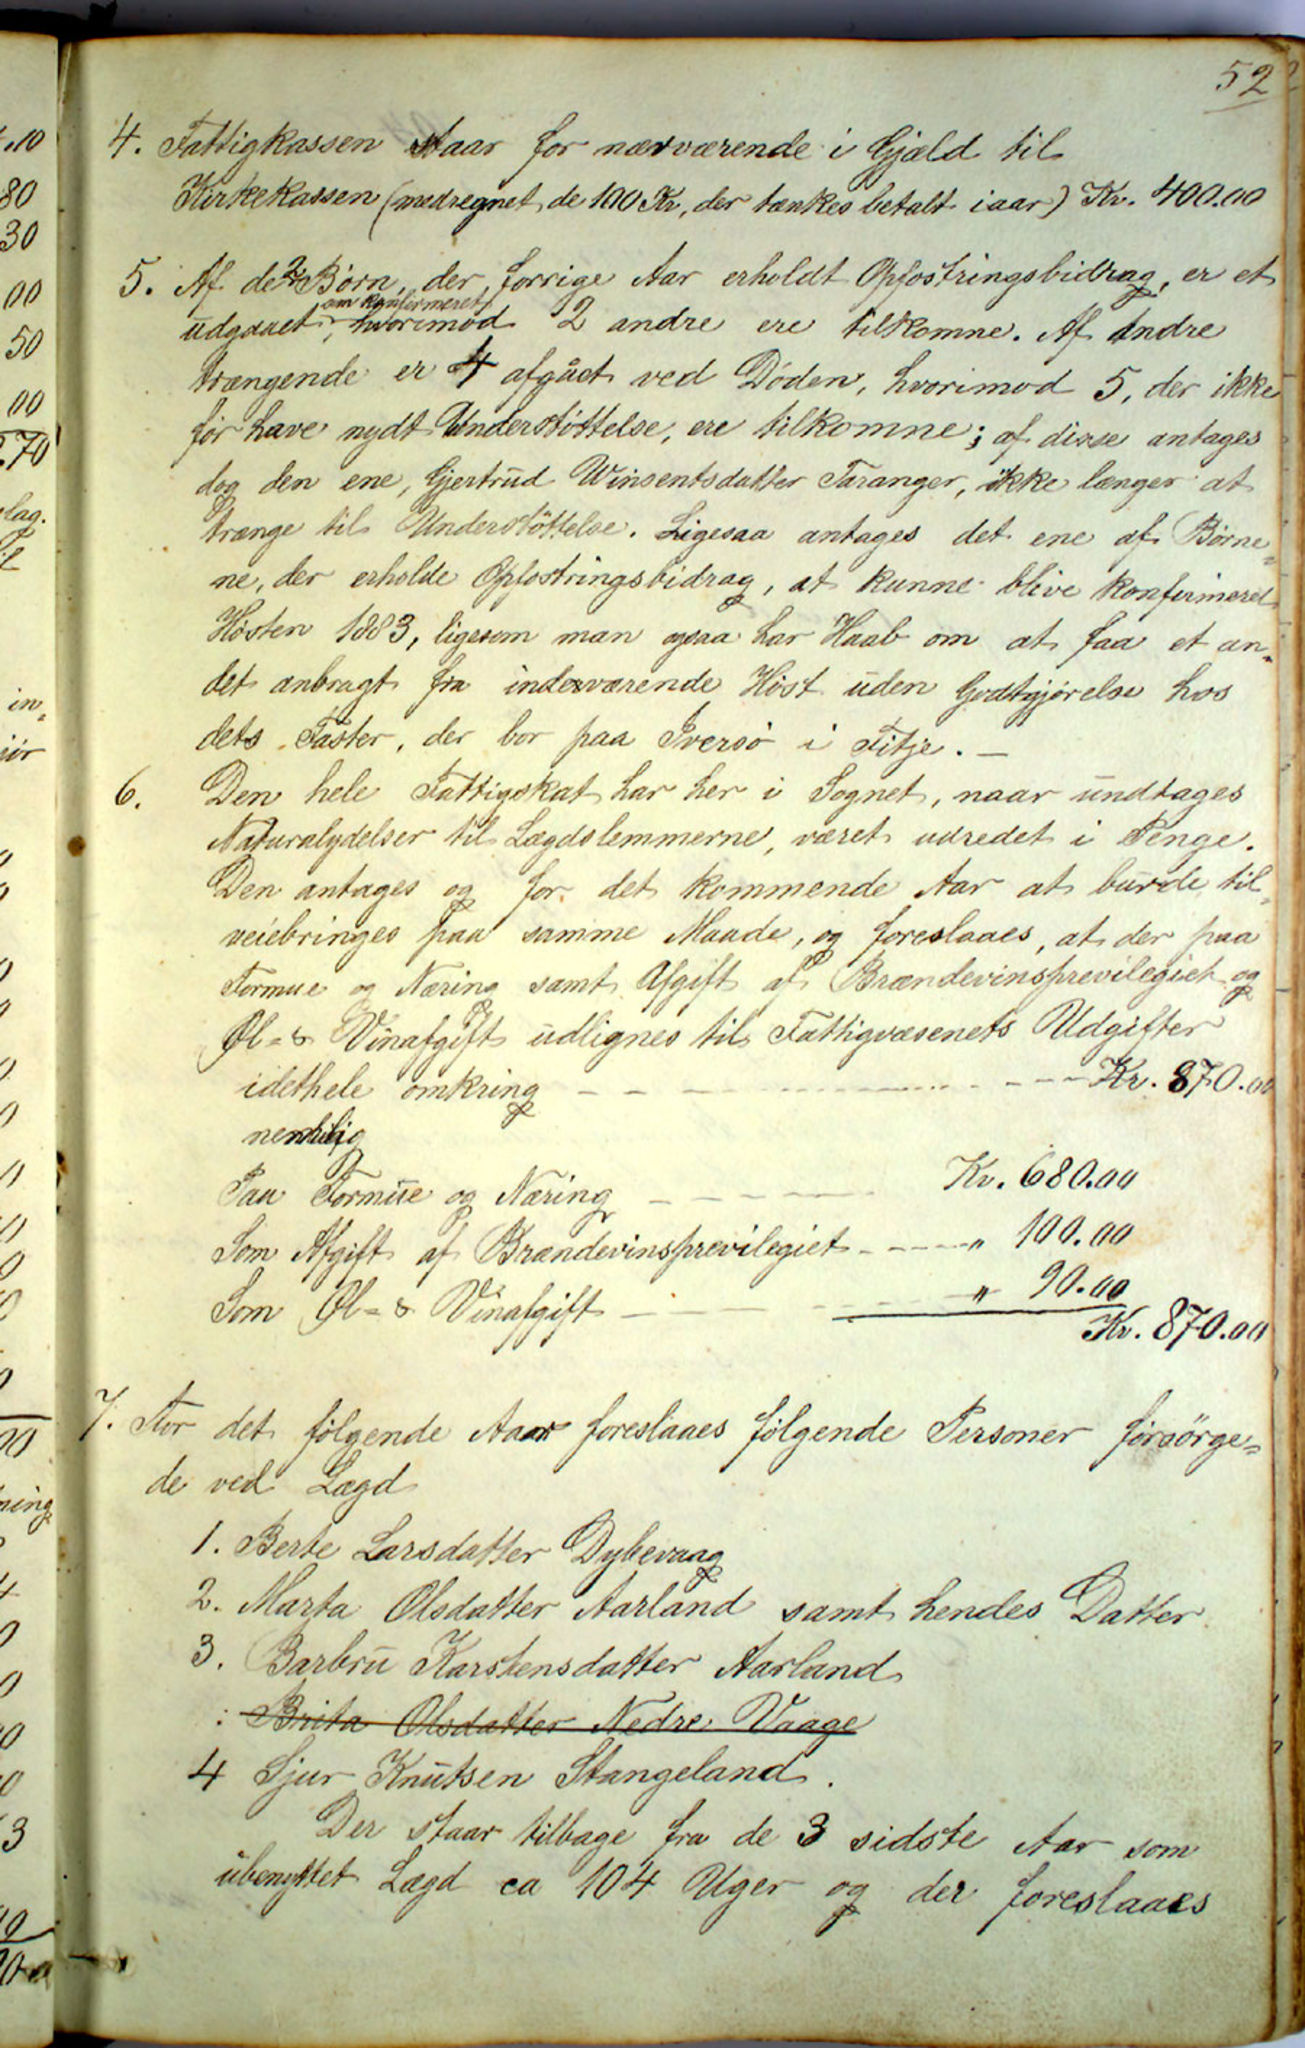 52
4. Fattigkassen staar for nærværende i Gjæld til
Kirkekassen (medregnet de 100 Kr, der tænkes betalt iaar) Kr. 400.00
5. Af de 2 Børn, der forrige Aar erholdt Opfostringsbidrag, er et
som konfirmeret
udgaaet, hvorimod 2 andre ere tilkomne. Af Andre
trængende er 4 afgået ved Døden, hvorimod 5, der ikke
før have nydt Understøttelse, ere tilkomne; af disse antages
dog den ene, Gjertrud Winsentsdatter Taranger, ikke længer at
trænge til Understøttelse. Ligesaa antages det ene af Børne=
ne, der erholde Opfostringsbidrag, at kunne blive konfirmeret
Høsten 1883, ligesom man ogsaa har Haab om at faa et an=
det anbragt fra indeværende Høst uden Godtgjørelse hos
dets Faster, der bor paa Iversø i Fitje. —
6. Den hele Fattigskat har her i Sognet, naar undtages
Naturalydelser til Lægdslemmerne, været udredet i Penge.
Den antages og for det kommende Aar at burde til=
veiebringes paa samme Maade, og foreslaaes, at der paa
Formue og Næring samt Afgift af Brændevinsprevilegiet og
Øl= & Vinafgift udlignes til Fattigvæsenets Udgifter
idethele omkring — — — — — — Kr. 870.00
nemlig
Paa Formue og Næring — — — — Kr. 680.00
Som Afgift af Brændevinsprevilegiet - - - - " 100.00
Som Øl= & Vinafgift — — — — " 90.00
Kr. 870.00
7. For det følgende Aar foreslaaes følgende Personer forsørge=
de ved Lægd
1. Berte Larsdatter Dybevaag
2. Marta Olsdatter Aarland samt hendes Datter
3. Barbru Karstensdatter Aarland
: Brita Olsdatter Nedre Vaage
4 Sjur Knutsen Stangeland.
Der staar tilbage fra de 3 sidste Aar som
ubenyttet Lægd ca 104 Uger og der foreslaaes